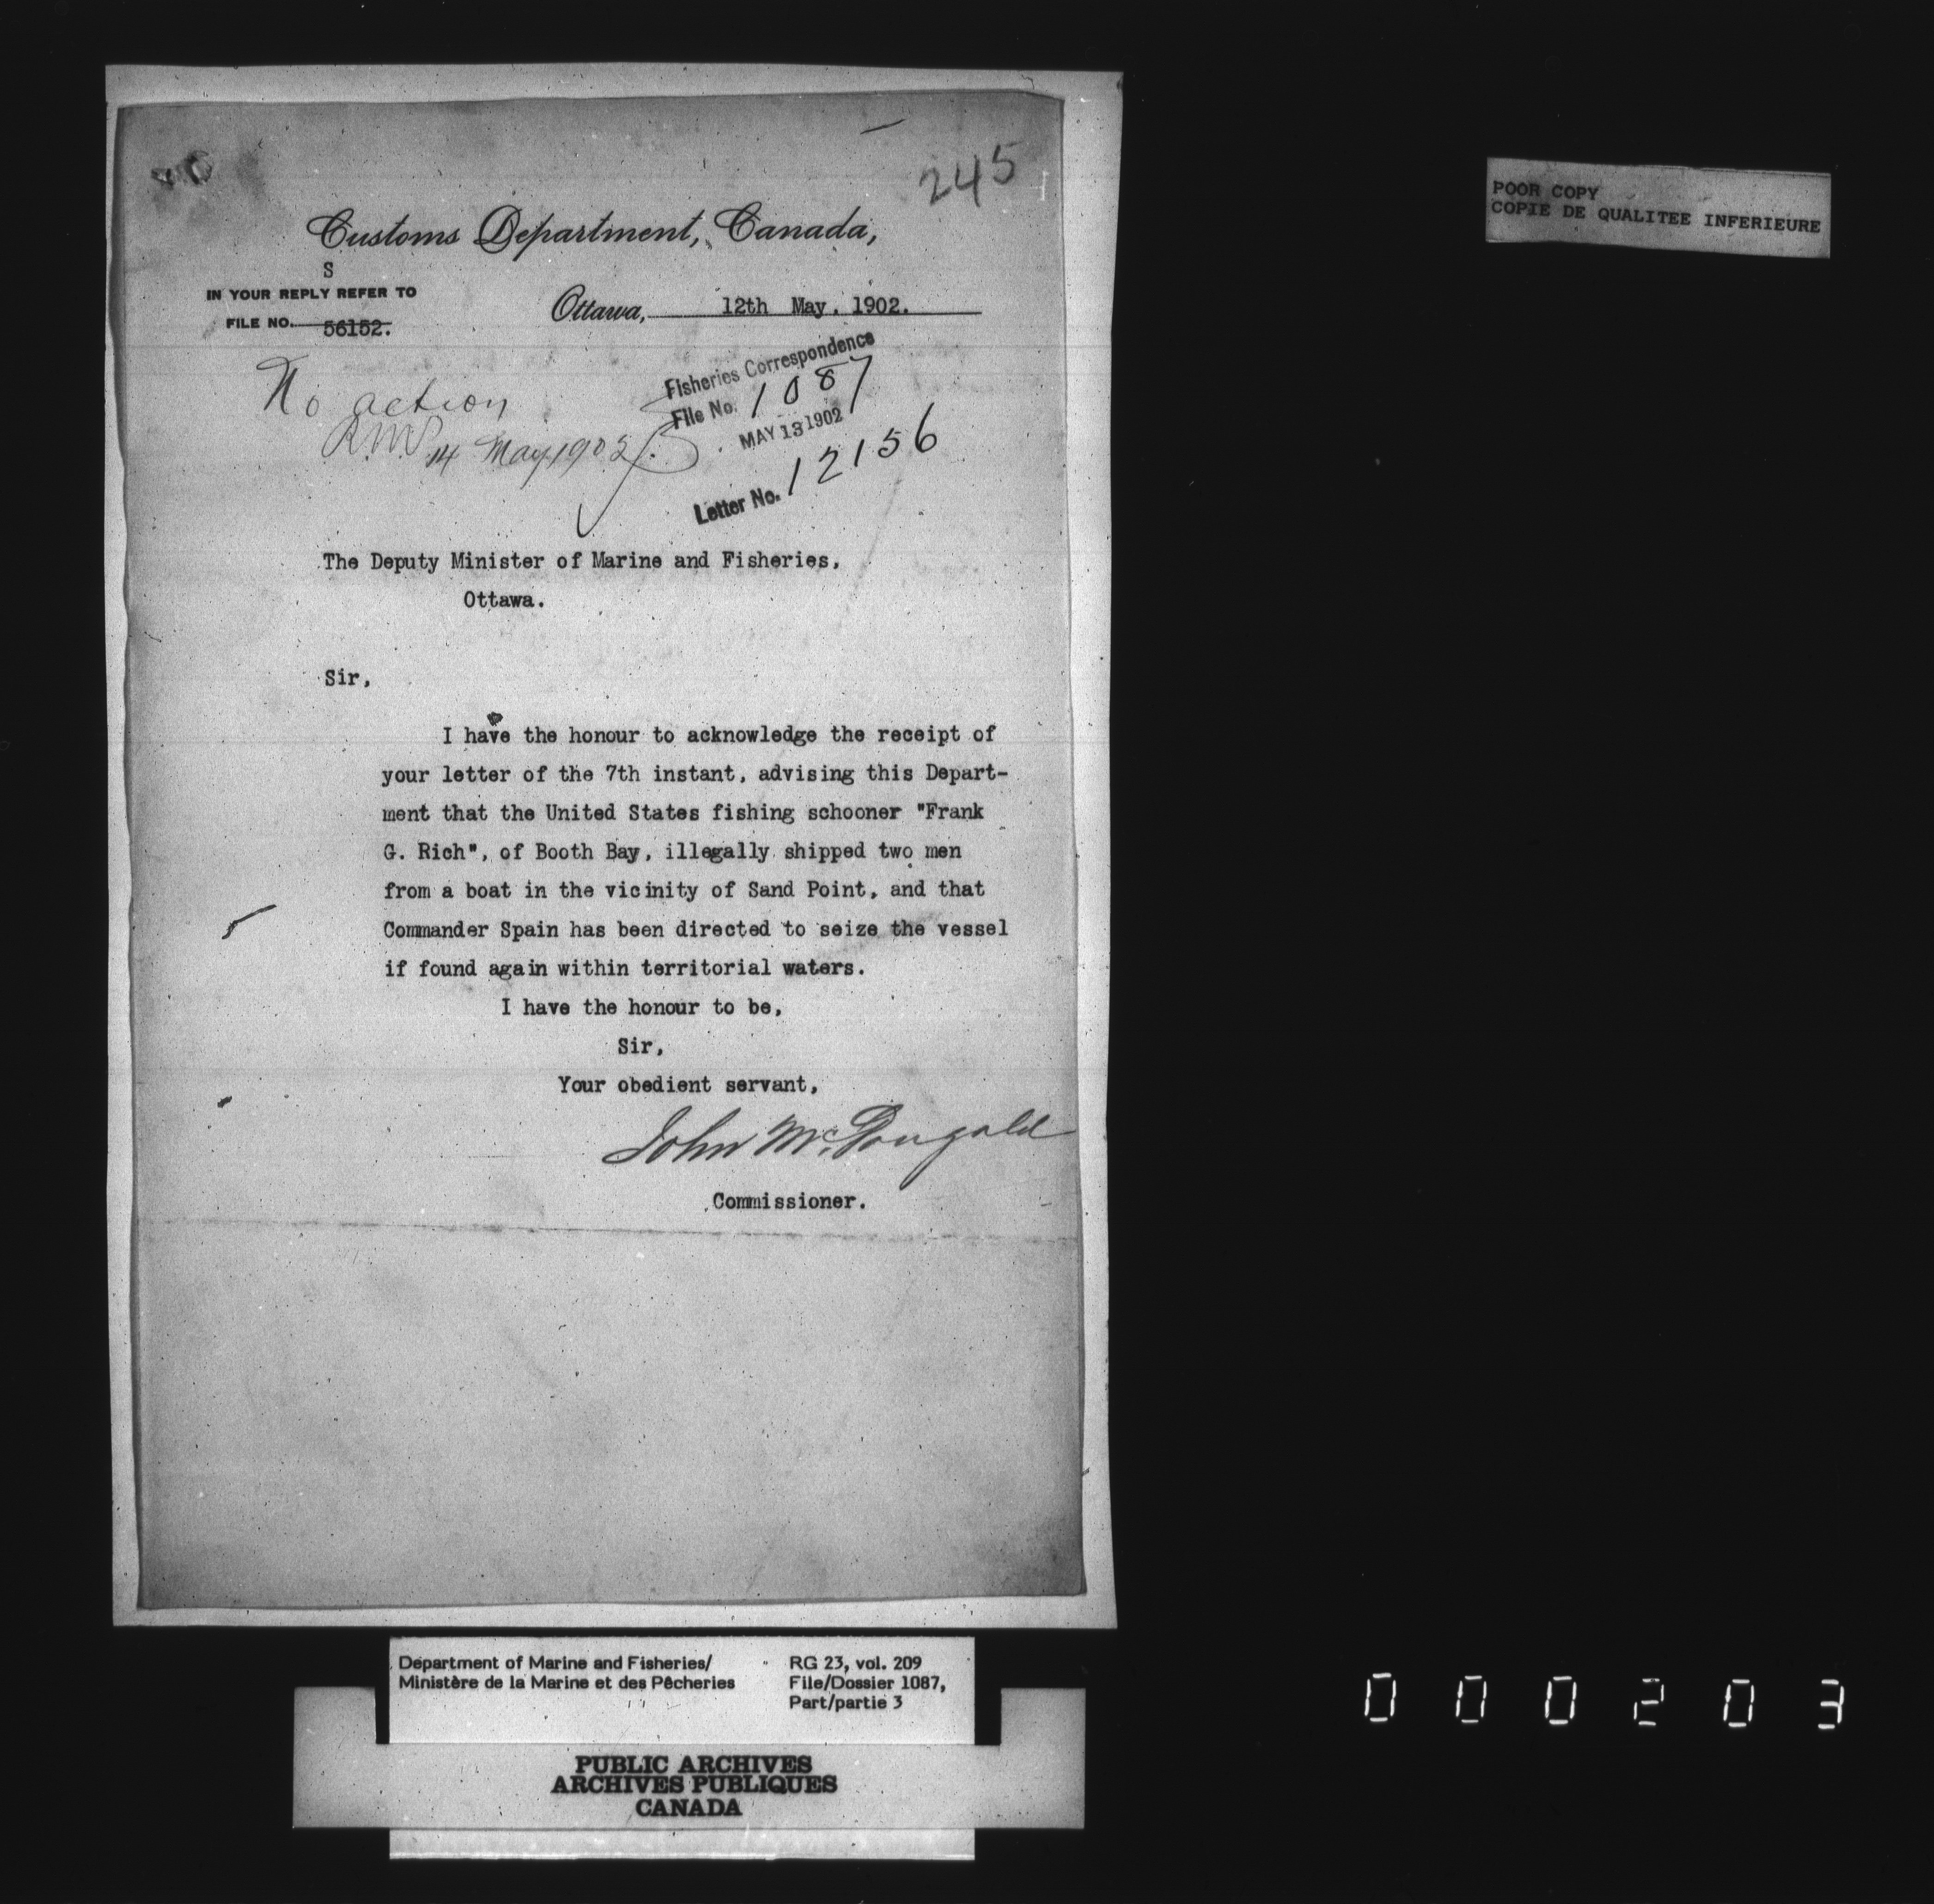 245
Customs Department, Canada,
S
IN YOUR REPLY REFER TO
FILE NO. 56152.
Ottawa, 12th May. 1902.
No action
14 May 1902
Fisheries Correspondence
File No. 1087
MAY 13 1902
Letter No. 12156
The Deputy Minister of Marine and Fisheries,
Ottawa.
Sir,
I have the honour to acknowledge the receipt of
your letter of the 7th instant, advising this Depart-
ment that the United States fishing schooner "Frank
G. Rich", of Booth Bay, illegally shipped two men
from a boat in the vicinity of Sand Point, and that
Commander Spain has been directed to seize the vessel
if found again within territorial waters.
I have the honour to be,
Sir,
Your obedient servant,
John McDougald
Commissioner.
POOR COPY
COPIE DE QUALITEE INFERIEURE
Department of Marine and Fisheries/
Ministère de la Marine et des Pêcheries
RG 23, vol. 209
File/Dossier 1087,
Part/partie 3
PUBLIC ARCHIVES
ARCHIVES PUBLIQUES
CANADA
000203